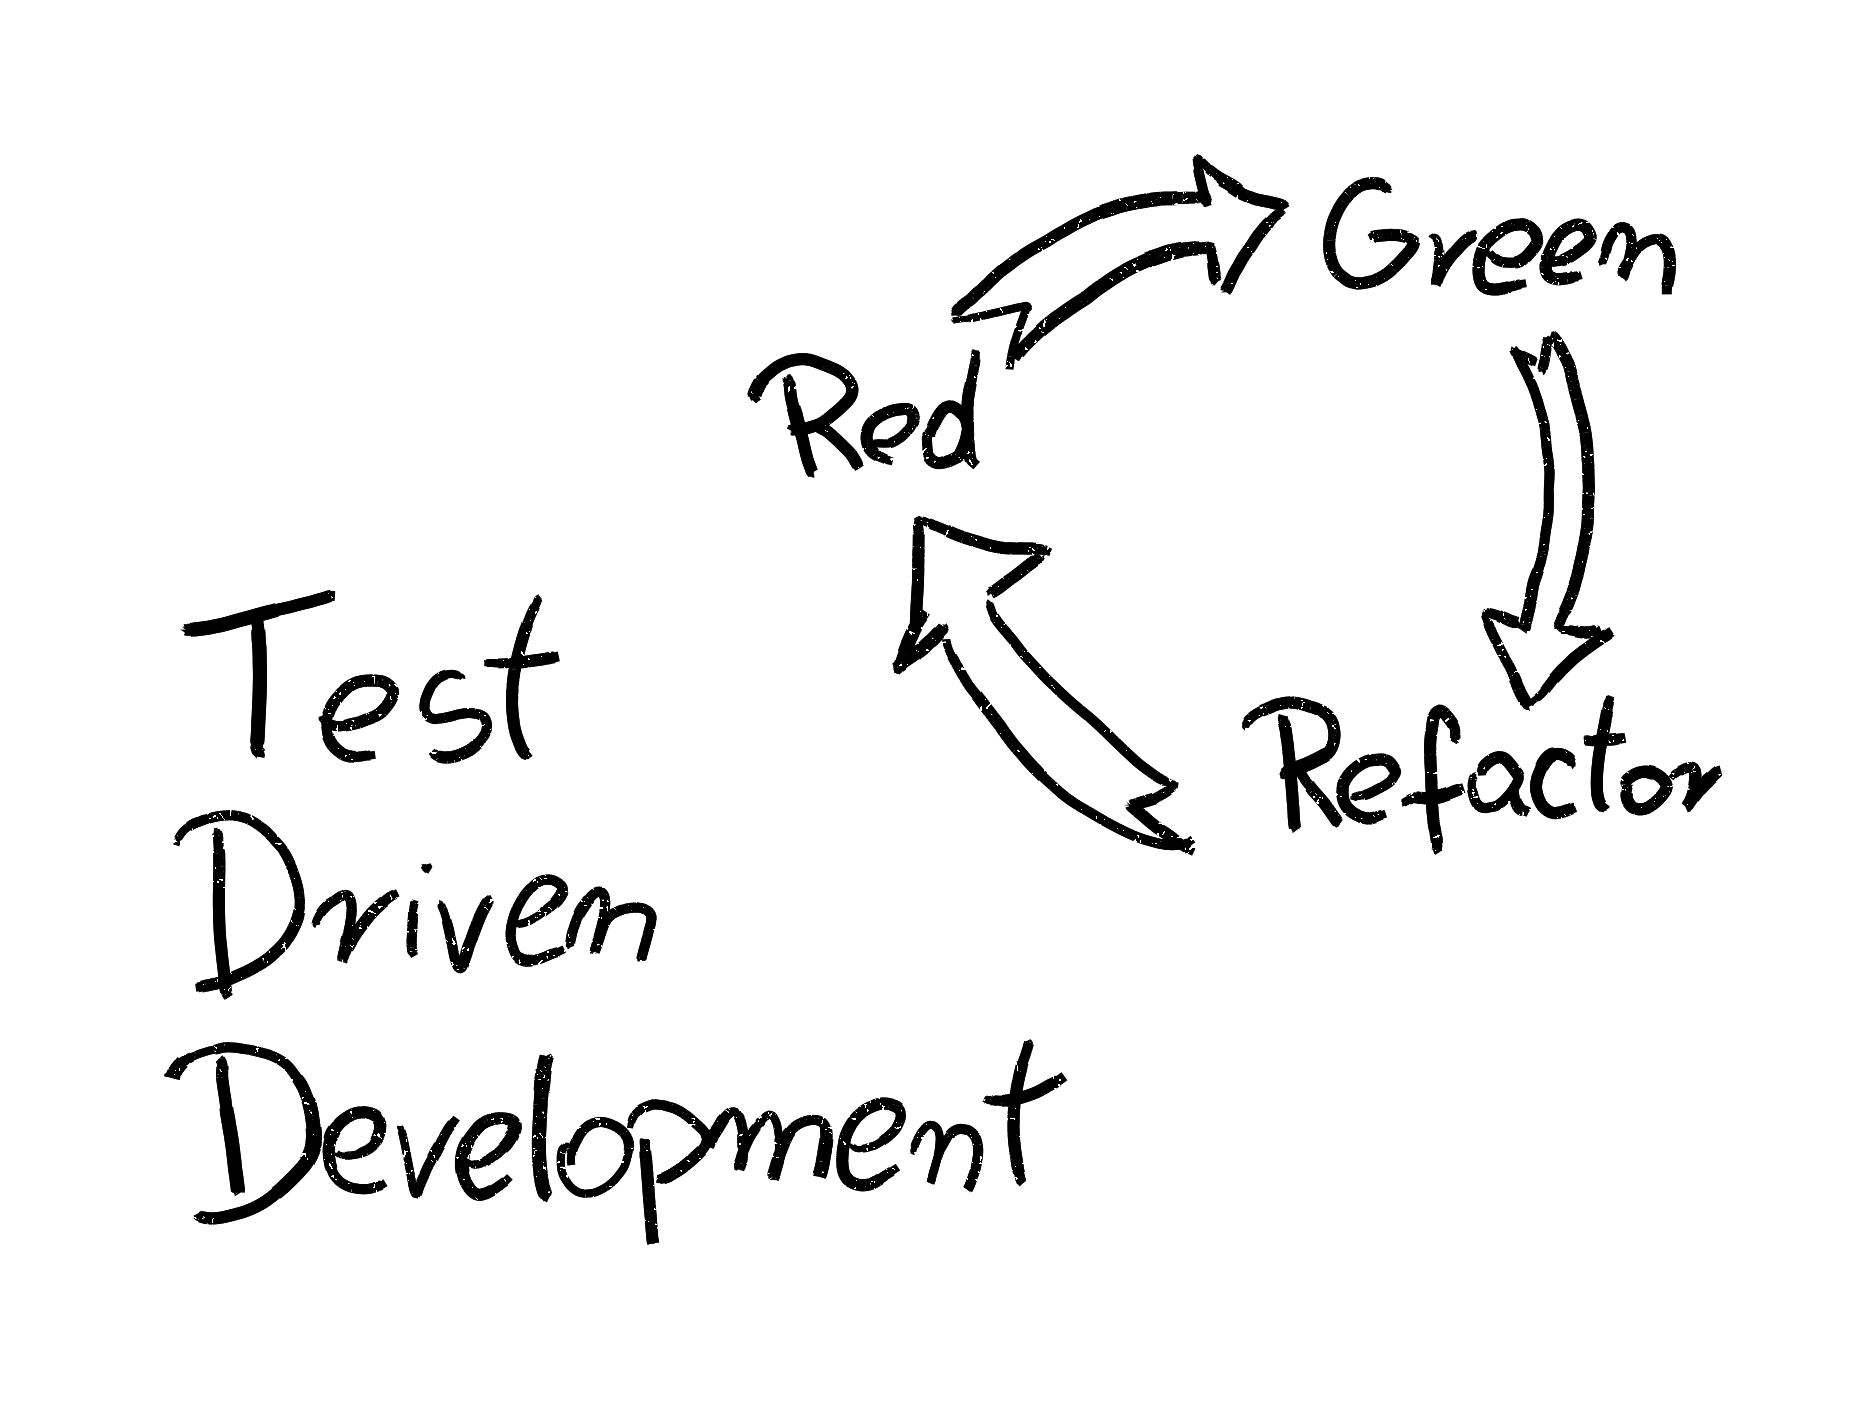 Green
Red
Refactor
Test
Driven
Development